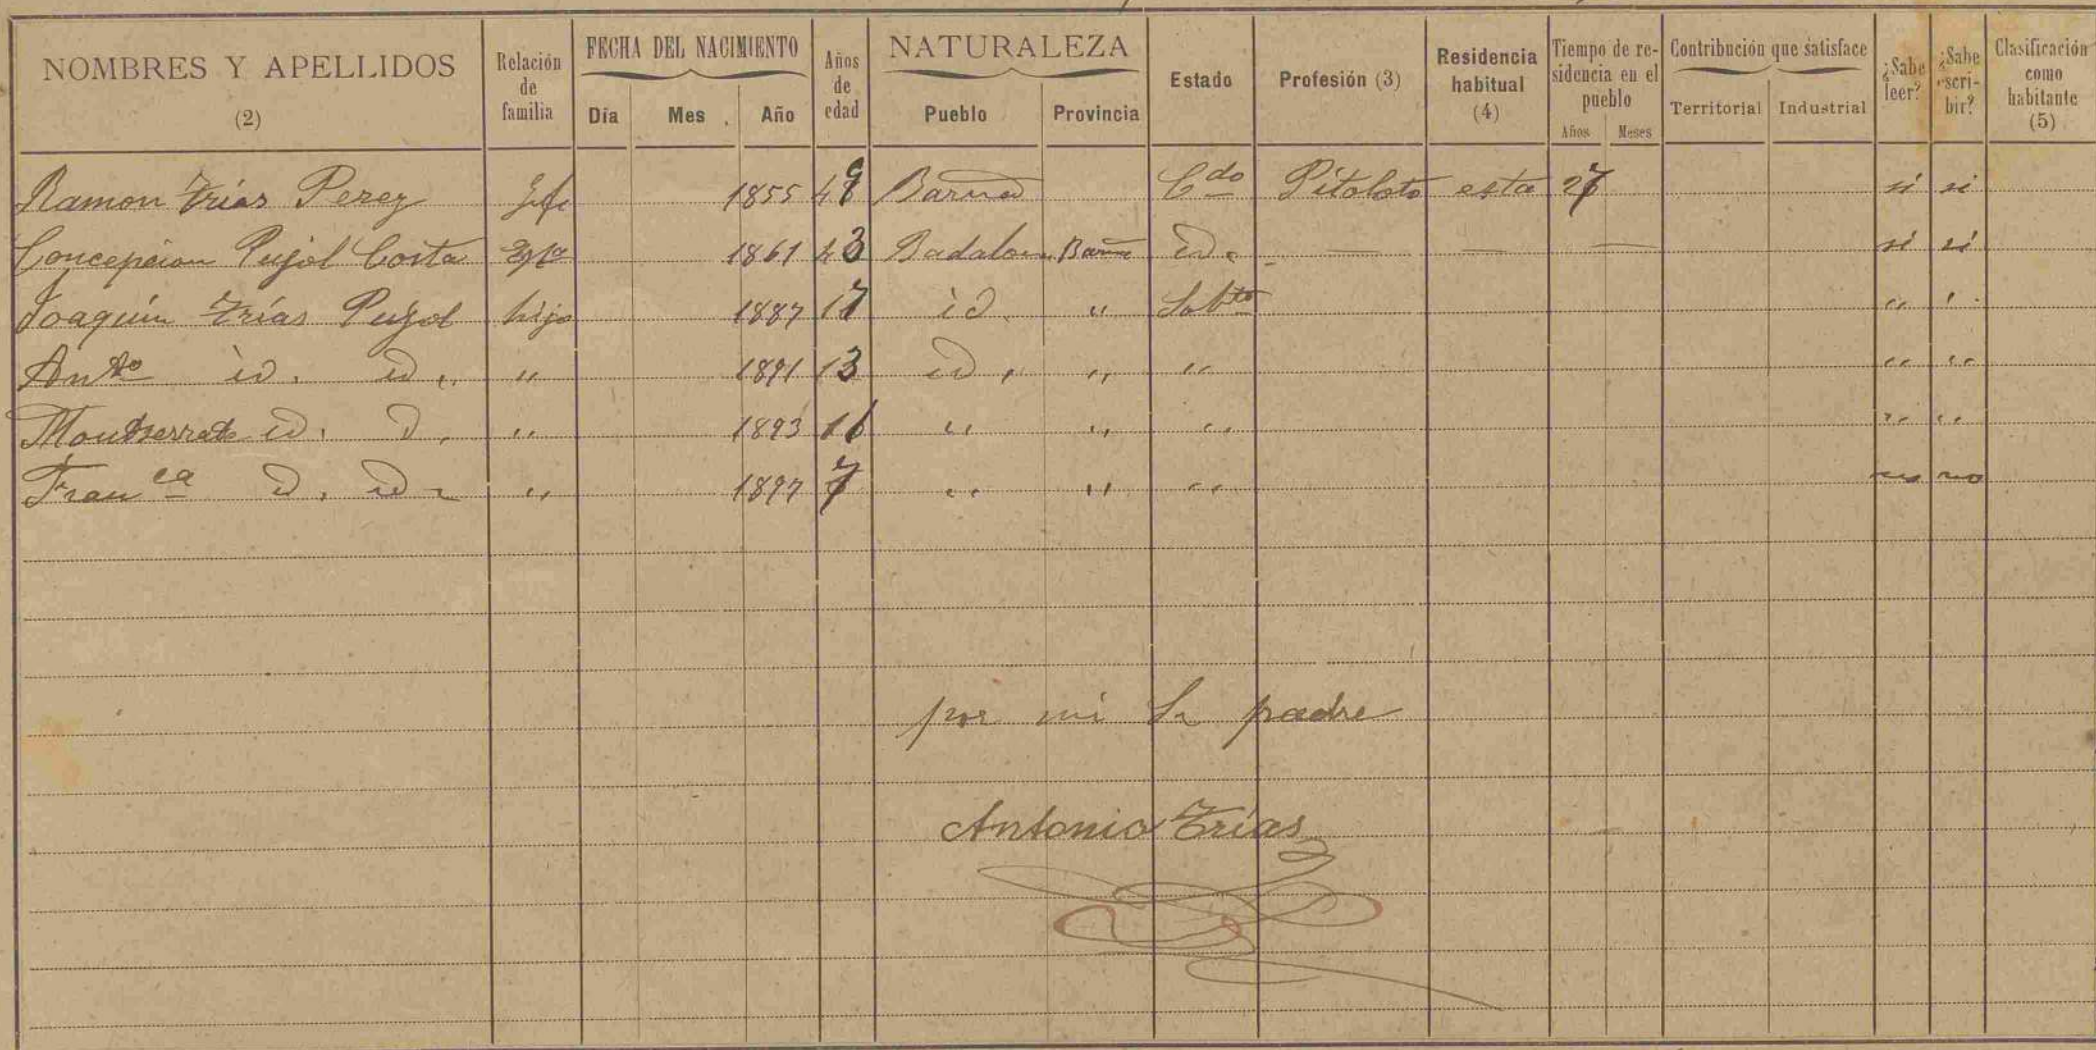 NOMBRES Y APELLIDOS (2) Relación de familia FECHA DEL NACIMIENTO Día Mes Año Años de edad NATURALEZA Pueblo Provincia Estado Profesión (3) Residencia habitual (4) Tiempo de residencia en el pueblo Años Meses Contribución que satisface Territorial Industrial ¿Sabe leer? ¿Sabe escribir? Clasificación como habitante (5)
Ramon Trías Perez Jefe 1855 49 Barna Cdo esta 27 sí si
Concepcion Pujol Costa Espa 1861 43 Badalona Barna id. — — — sí sí
Joaquín Trías Pujol hijo 1887 17 id. " Solto " "
Anto id. id. " 1891 13 id. " " " "
Montserrate id. id. " 1893 " " " " "
Franca id. id. " 1897 7 " " " no no
por mi Sr padre
Antonio Trías